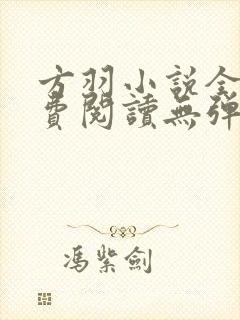 方羽小説全
費閱讀無彈
馮紫劍